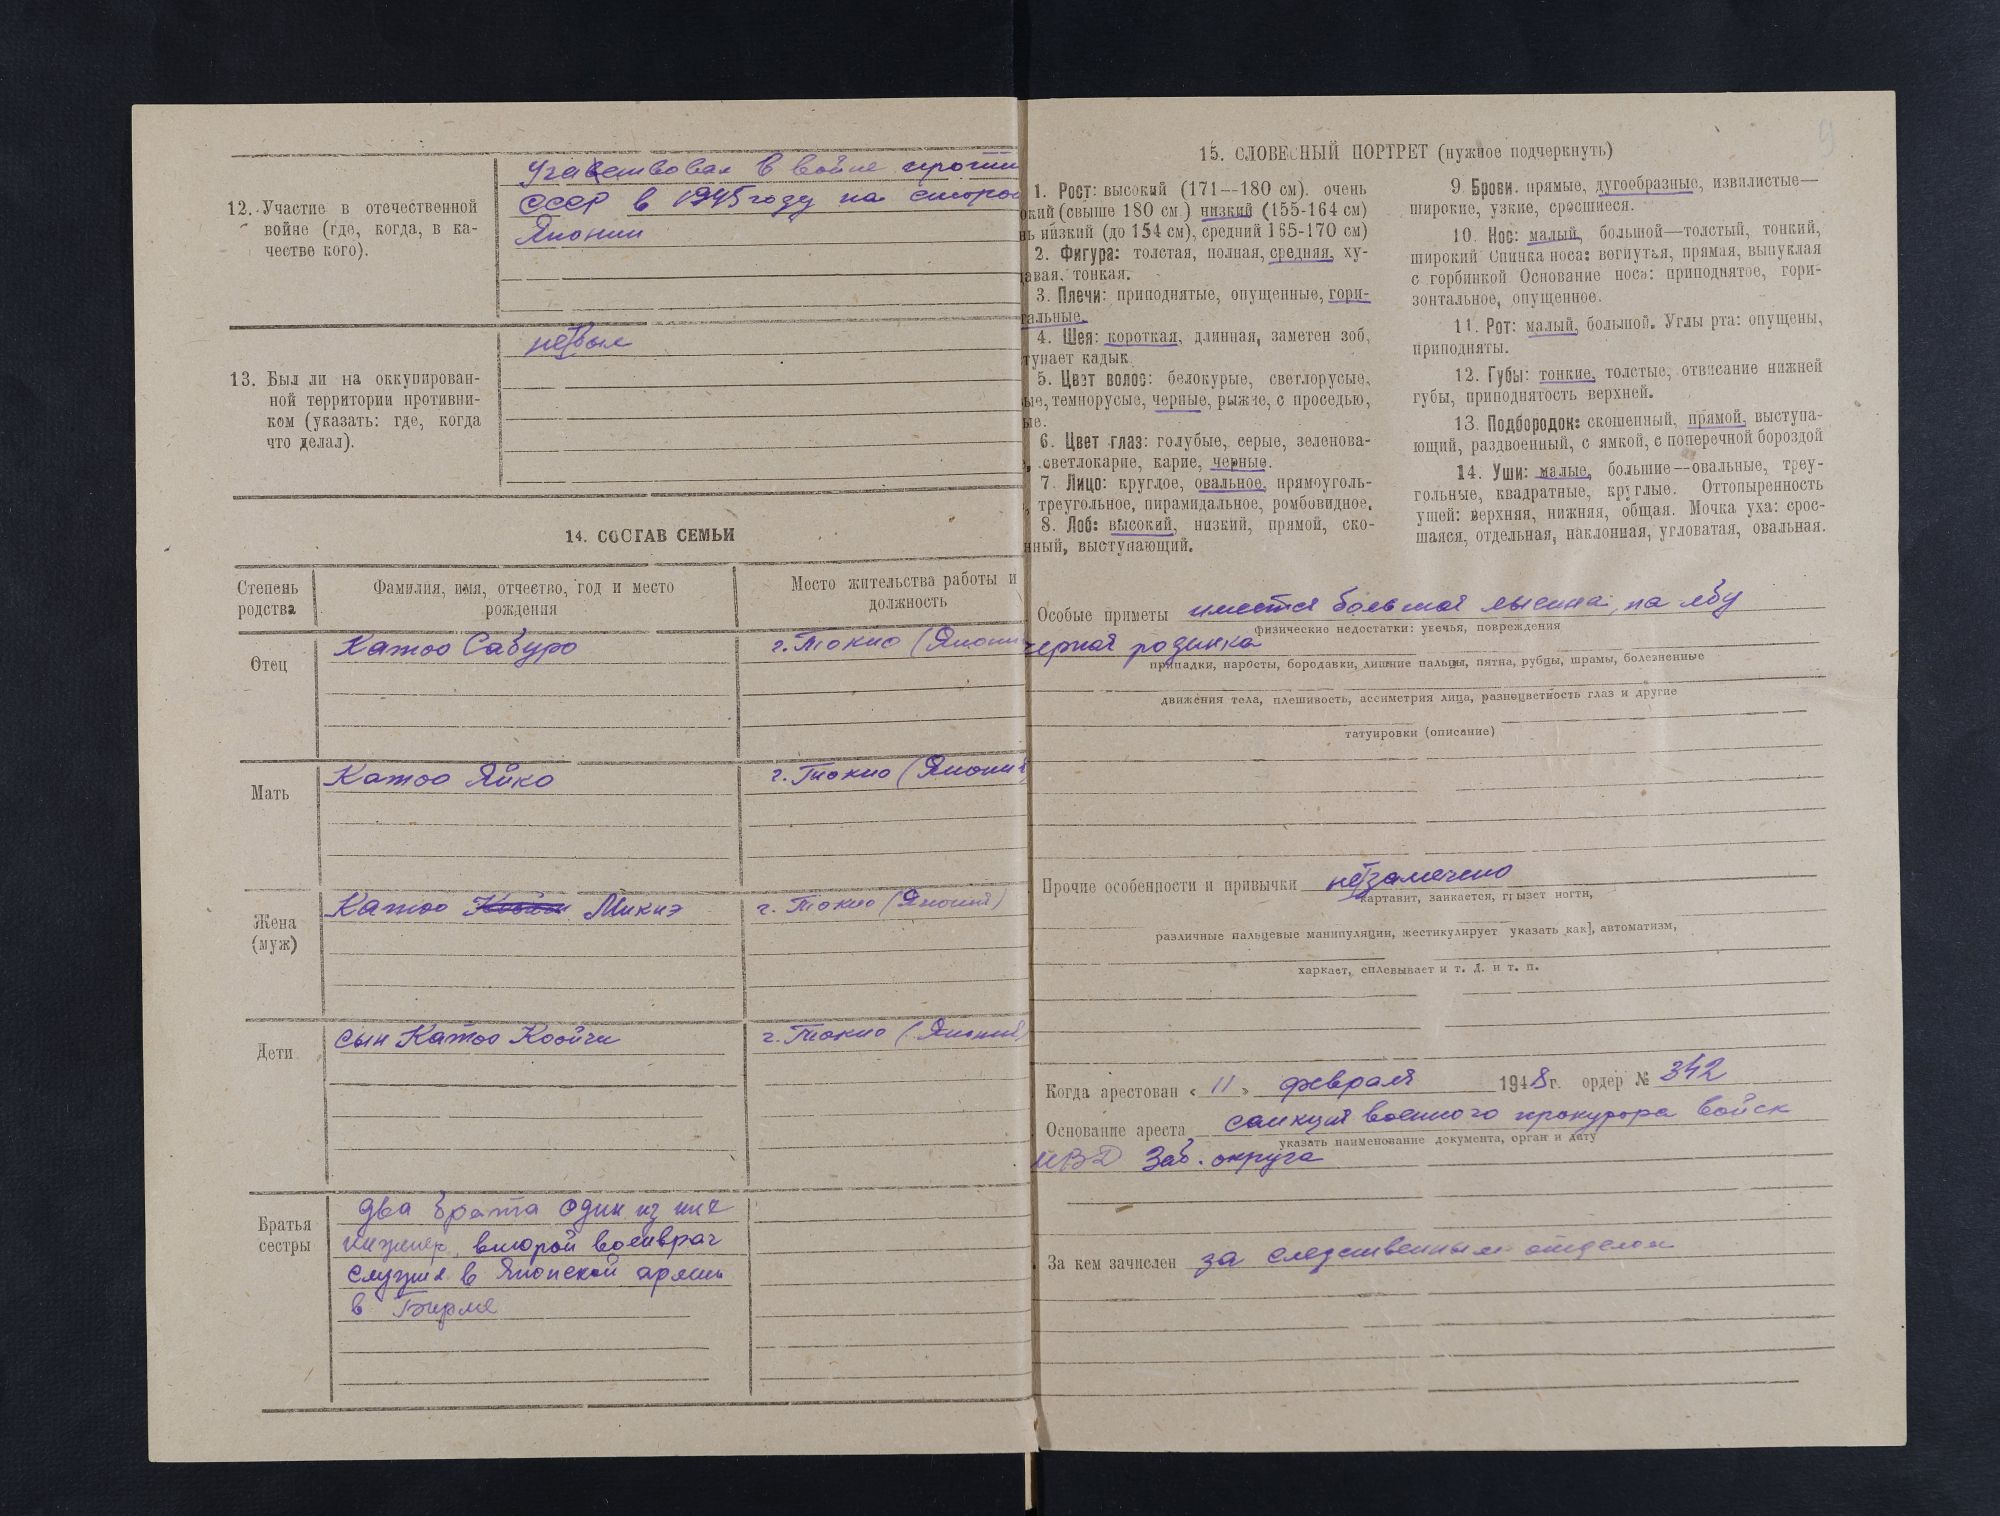 12. Участие в отечественной
войне (где, когда, в ка-
честве кого).
Участвовал в войне против
СССР в 1945 году на сторон
Японии
13. Был ли на оккупирован-
ной территории противни-
ком (указать: где, когда
что делал).
не был
14. СОСТАВ СЕМЬИ
Степень
родства
Фамилия, имя, отчество, год и место
рождения
Место жительства работы и
должность
Отец
Катоо Сабуро
г. Токио (Япони
Мать
Катоо Яйко
г. Токио (Япония
Жена
(муж)
Катоо Микиэ
г. Токио (Япония)
Дети
сын Катоо Коойчи
г. Токио (Япония)
Братья
сестры
два брата один из них
инженер, второй военврач
служил в Японской армии
в Бирме
9
15. СЛОВЕСНЫЙ ПОРТРЕТ (нужное подчеркнуть)
1. Рост: высокий (171—180 см). очень
окий (свыше 180 см.) низкий (155-164 см)
нь низкий (до 154 см), средний 165-170 см)
2. Фигура: толстая, полная, средняя, ху-
авая, тонкая.
3. Плечи: приподнятые, опущенные, гори-
тальные.
4. Шея: короткая, длинная, заметен зоб,
тупает кадык.
5. Цвет волос: белокурые, светлорусые,
ые, темнорусые, черные, рыжие, с проседью,
ые.
6. Цвет глаз: голубые, серые, зеленова-
, светлокарие, карие, черные.
7. Лицо: круглое, овальное, прямоуголь-
, треугольное, пирамидальное, ромбовидное.
8. Лоб: высокий, низкий, прямой, ско-
нный, выступающий.
9. Брови. прямые, дугообразные, извилистые—
широкие, узкие, сросшиеся.
10. Нос: малый, большой—толстый, тонкий,
широкий Спинка носа: вогнутая, прямая, выпуклая
с горбинкой Основание носа: приподнятое, гори-
зонтальное, опущенное.
11. Рот: малый, большой. Углы рта: опущены,
приподняты.
12. Губы: тонкие, толстые, отвисание нижней
губы, приподнятость верхней.
13. Подбородок: скошенный, прямой, выступа-
ющий, раздвоенный, с ямкой, с поперечной бороздой
14. Уши: малые, большие—овальные, треу-
гольные, квадратные, круглые. Оттопыренность
ушей: верхняя, нижняя, общая. Мочка уха: срос-
шаяся, отдельная, наклонная, угловатая, овальная.
Особые приметы имеется большая лысина, на лбу
физические недостатки: увечья, повреждения
черная родинка
припадки, наросты, бородавки, лишние пальцы, пятна, рубцы, шрамы, болезненные
движения тела, плешивость, ассиметрия лица, разноцветность глаз и другие
татуировки (описание)
Прочие особенности и привычки не замечено
картавит, заикается, грызет ногти,
различные пальцевые манипуляции, жестикулирует указать как], автоматизм,
харкает, сплевывает и т. д. и т. п.
Когда арестован « 11 » февраля 1948 г. ордер № 342
Основание ареста санкция военного прокурора войск
указать наименование документа, орган и дату
МВД Заб. округа
За кем зачислен за следственным отделом